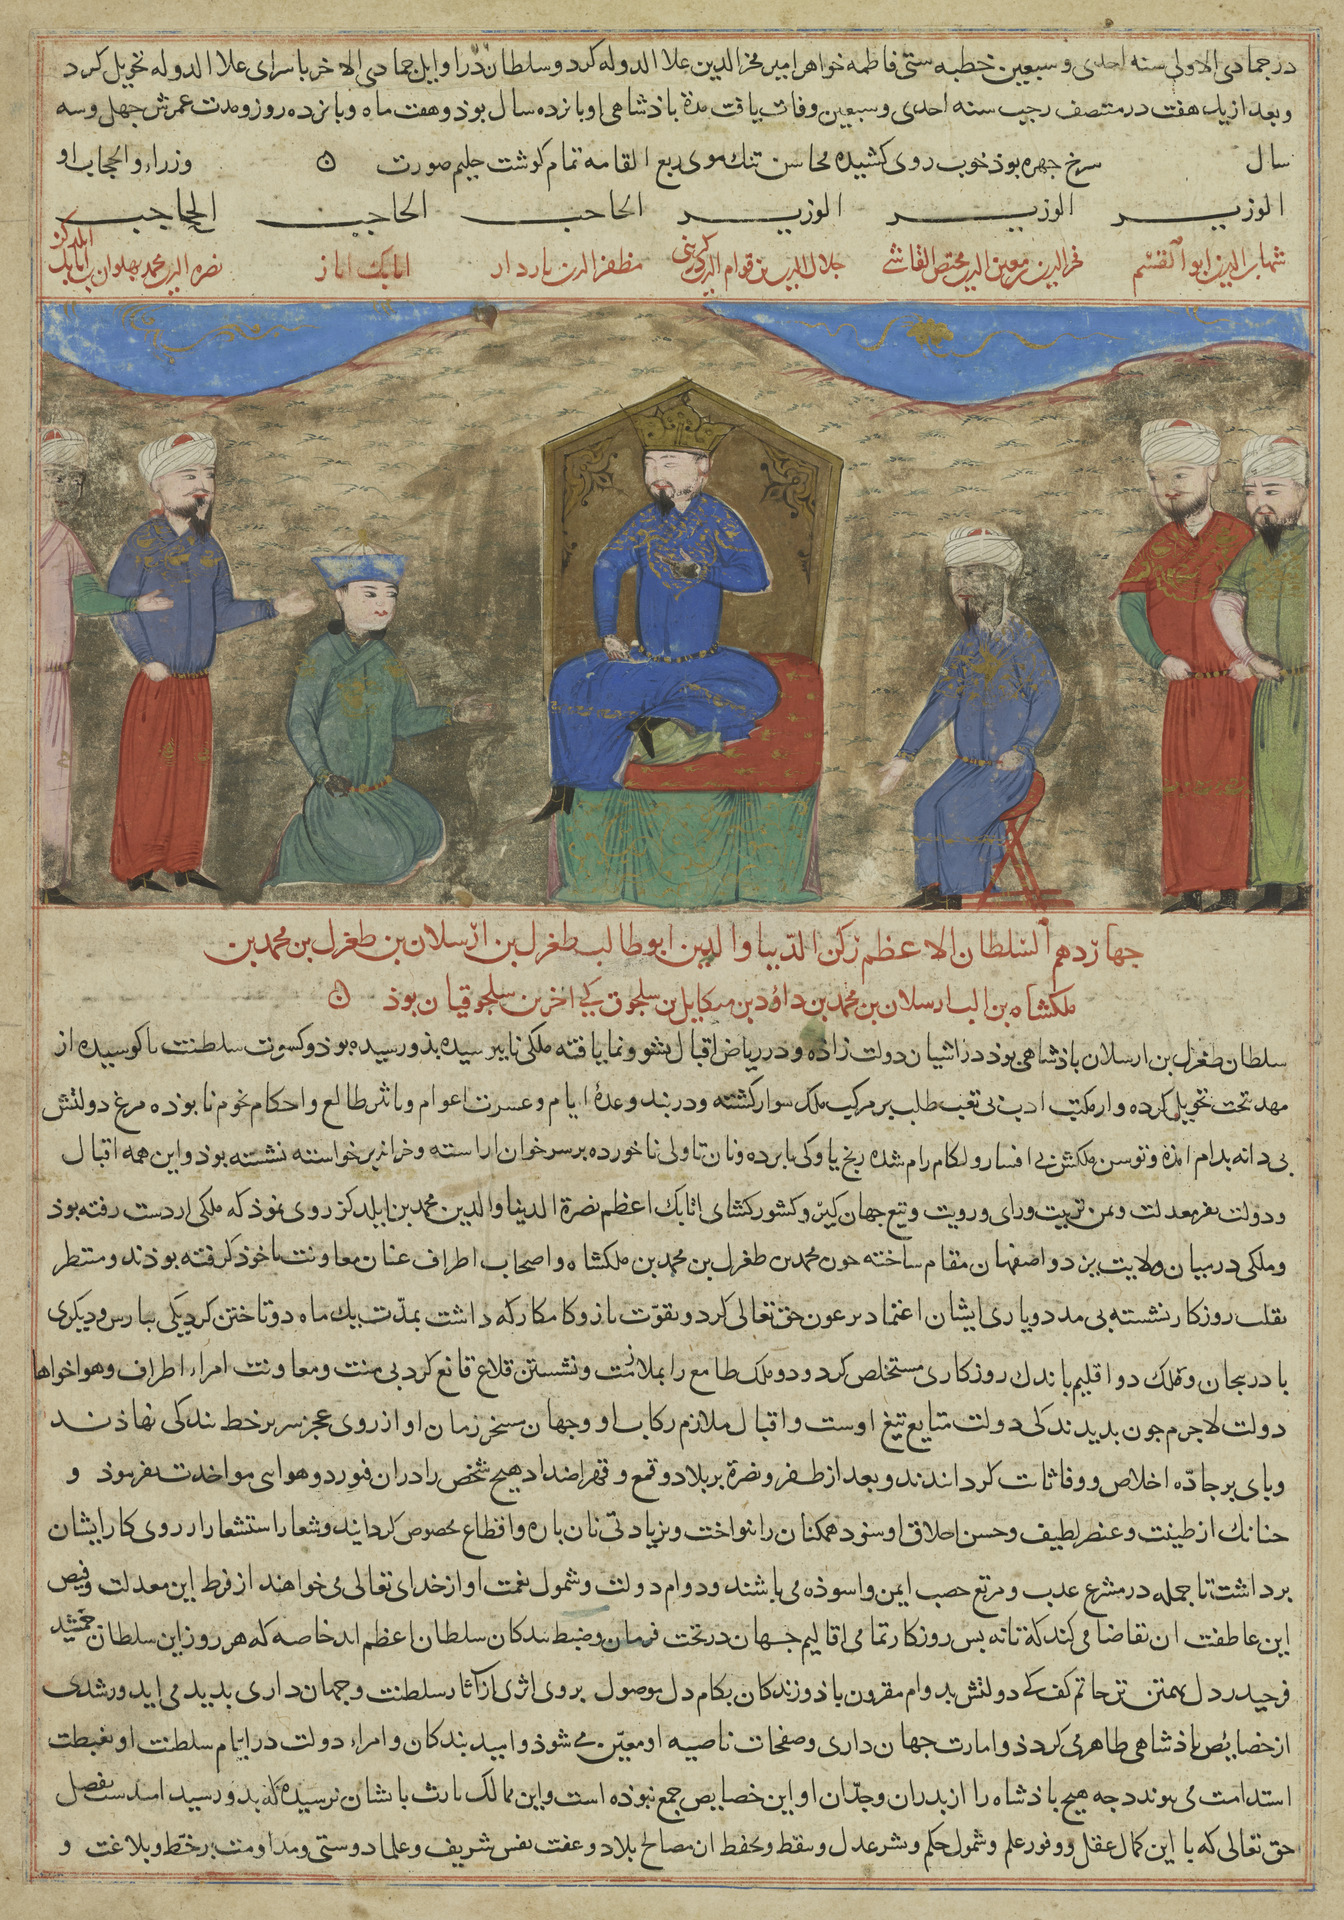 در جمادی الاولی سنه احدی و سبعین خطبه ستی فاطمه خواهر امیر فخر الدین علا الدوله کرد و سلطان در اوایل جمادی الاخر با سرای علا الدوله تحویل کرد
و بعد از یک هفت در منتصف رجب سنه احدی و سبعین وفات یافت مدة باذشاهی او بانزده سال بوذ و هفت ماه و بانزده روز و مدت عمرش جهل و سه
سال سرخ جهره بوذ خوب روی کشیده محاسن تنک موی ربع القامه تمام کوشت حلیم صورت ن وزراء و الحجاب او
الوزیر الوزیر الوزیر الحاجب الحاجب الحاجب
شهاب الدین ابو القسم فخر الدین بن معین الدین مختص القاشی جلال الدین بن قوام الدین مظفر الدین باردار اتابک ایاز نصره الدین محمد بهلوان بن اتابک ایلدکز
جهاردهم السلطان الاعظم رکن الدنیا و الدین ابو طالب طغرل بن ارسلان بن طغرل بن محمد بن
ملکشاه بن الب ارسلان بن محمد بن داود بن میکایل بن سلجوق کی اخرین سلجوقیان بوذ ن
سلطان طغرل بن ارسلان باذشاهی بوذ در اشیان دولت زاده و در ریاض اقبال نشو و نما یافته ملکی نابیر سیده بذو رسیده بوذ و کسوت سلطنت ناکوسیده از
مهد تخت تحویل کرده و از مکتب ادب بی تعب طلب بر مرکب ملک سوار کشته و در بند وعدهٔ ایام و عسرت اعوام و تاثر طالع و احکام نجوم نابوده مرغ دولتش
بی دانه بدام امذه و توسن ملکش بی افسار و لکام رام شده رنج باوکی نابرده و نان تاولی ناخورده بر سر خوان اراسته و خزانه بر خواسته نشسته بوذ و این همه اقبال
و دولت بفر معدلت و یمن تربیت و رای و رویت و تیغ جهان کیر و کشور کشای اتابک اعظم نصرة الدنیا و الدین محمد بن ایلدکز روی نموذ که ملکی از دست رفته بوذ
و ملکی در میان ولایت یزد و اصفهان مقام ساخته چون محمد بن طغرل بن محمد بن ملکشاه و اصحاب اطراف عنان معاونت با خوذ کرفته بوذند و منتظر
تقلب روزکار نشسته بی مدد و یاری ایشان اعتماد بر عون حق تعالی کرد و بقوت بازو کامکار که داشت بمدت یک ماه دو تاختن کرد یکی ببارس و دیکری
باذربیجان و ملک دو اقلیم باندک روزکاری مستخلص کرد و دو ملک طامع را بملازمت و نشستن قلاع قانع کرد بی منت و معاونت امراء اطراف و هواخواهان
دولت لاجرم جون بدیدند کی دولت متابع تیغ اوست و اقبال ملازم رکاب او و جهان مسخر زمان او از روی عجز سر بر خط بندکی نهاذند
و بای بر جاده اخلاص و وفا ثابت کرداندند و بعد از ظفر و نصرة بر بلاد و قمع و قهر اضداد هیچ شخص را دران فورد و هوا سی مواخذت نفرموذ و
جنانک از طینت و عنصر لطیف و حسن اخلاق او سزد همکنان را بنواخت و بزیادتی نان باره و اقطاع مخصوص کردانید و شعار استشعار از روی کار ایشان
برداشت تا جمله در مشرع عذب و مرتع خصب ایمن و اسوذه می باشند و دوام دولت و شمول نعمت او از خدای تعالی می خواهند از فرط این معدلت و فیض
این عاطفت ان تقاضا می کند که تا نه بس روزکار تمامی اقالیم جهان در تحت فرمان و ضبط بندکان سلطان اعظم اید خاصه که هر روز این سلطان جمشید
فر حیدر دل تهمتن تن حاتم کف کی دولتش بدوام مقرون باذ و زندکان بکام دل موصول بروی اثری از آثار سلطنت و جهان داری بدید می اید و رشدی
از خصایص باذشاهی ظاهر می کردذ و امارت جهان داری و صفحات ناصیه او معین می شوذ و امید بندکان و امراء دولت در ایام سلطنت او بغبطت
استدامت می بیوندد جه هیچ باذشاه را از بدران و جدان او این خصایص جمع نبوذه است و این ممالک بارث بایشان نرسیده که بدو رسید امید ست بفضل
حق تعالی که با این کمال عقل و وفور علم و شمول حکم و نشر عدل و تیقظ و تحفظ ان مصالح بلاد و عفت نفس شریف و علما دوستی و مداومت بر خط و بلاغت و